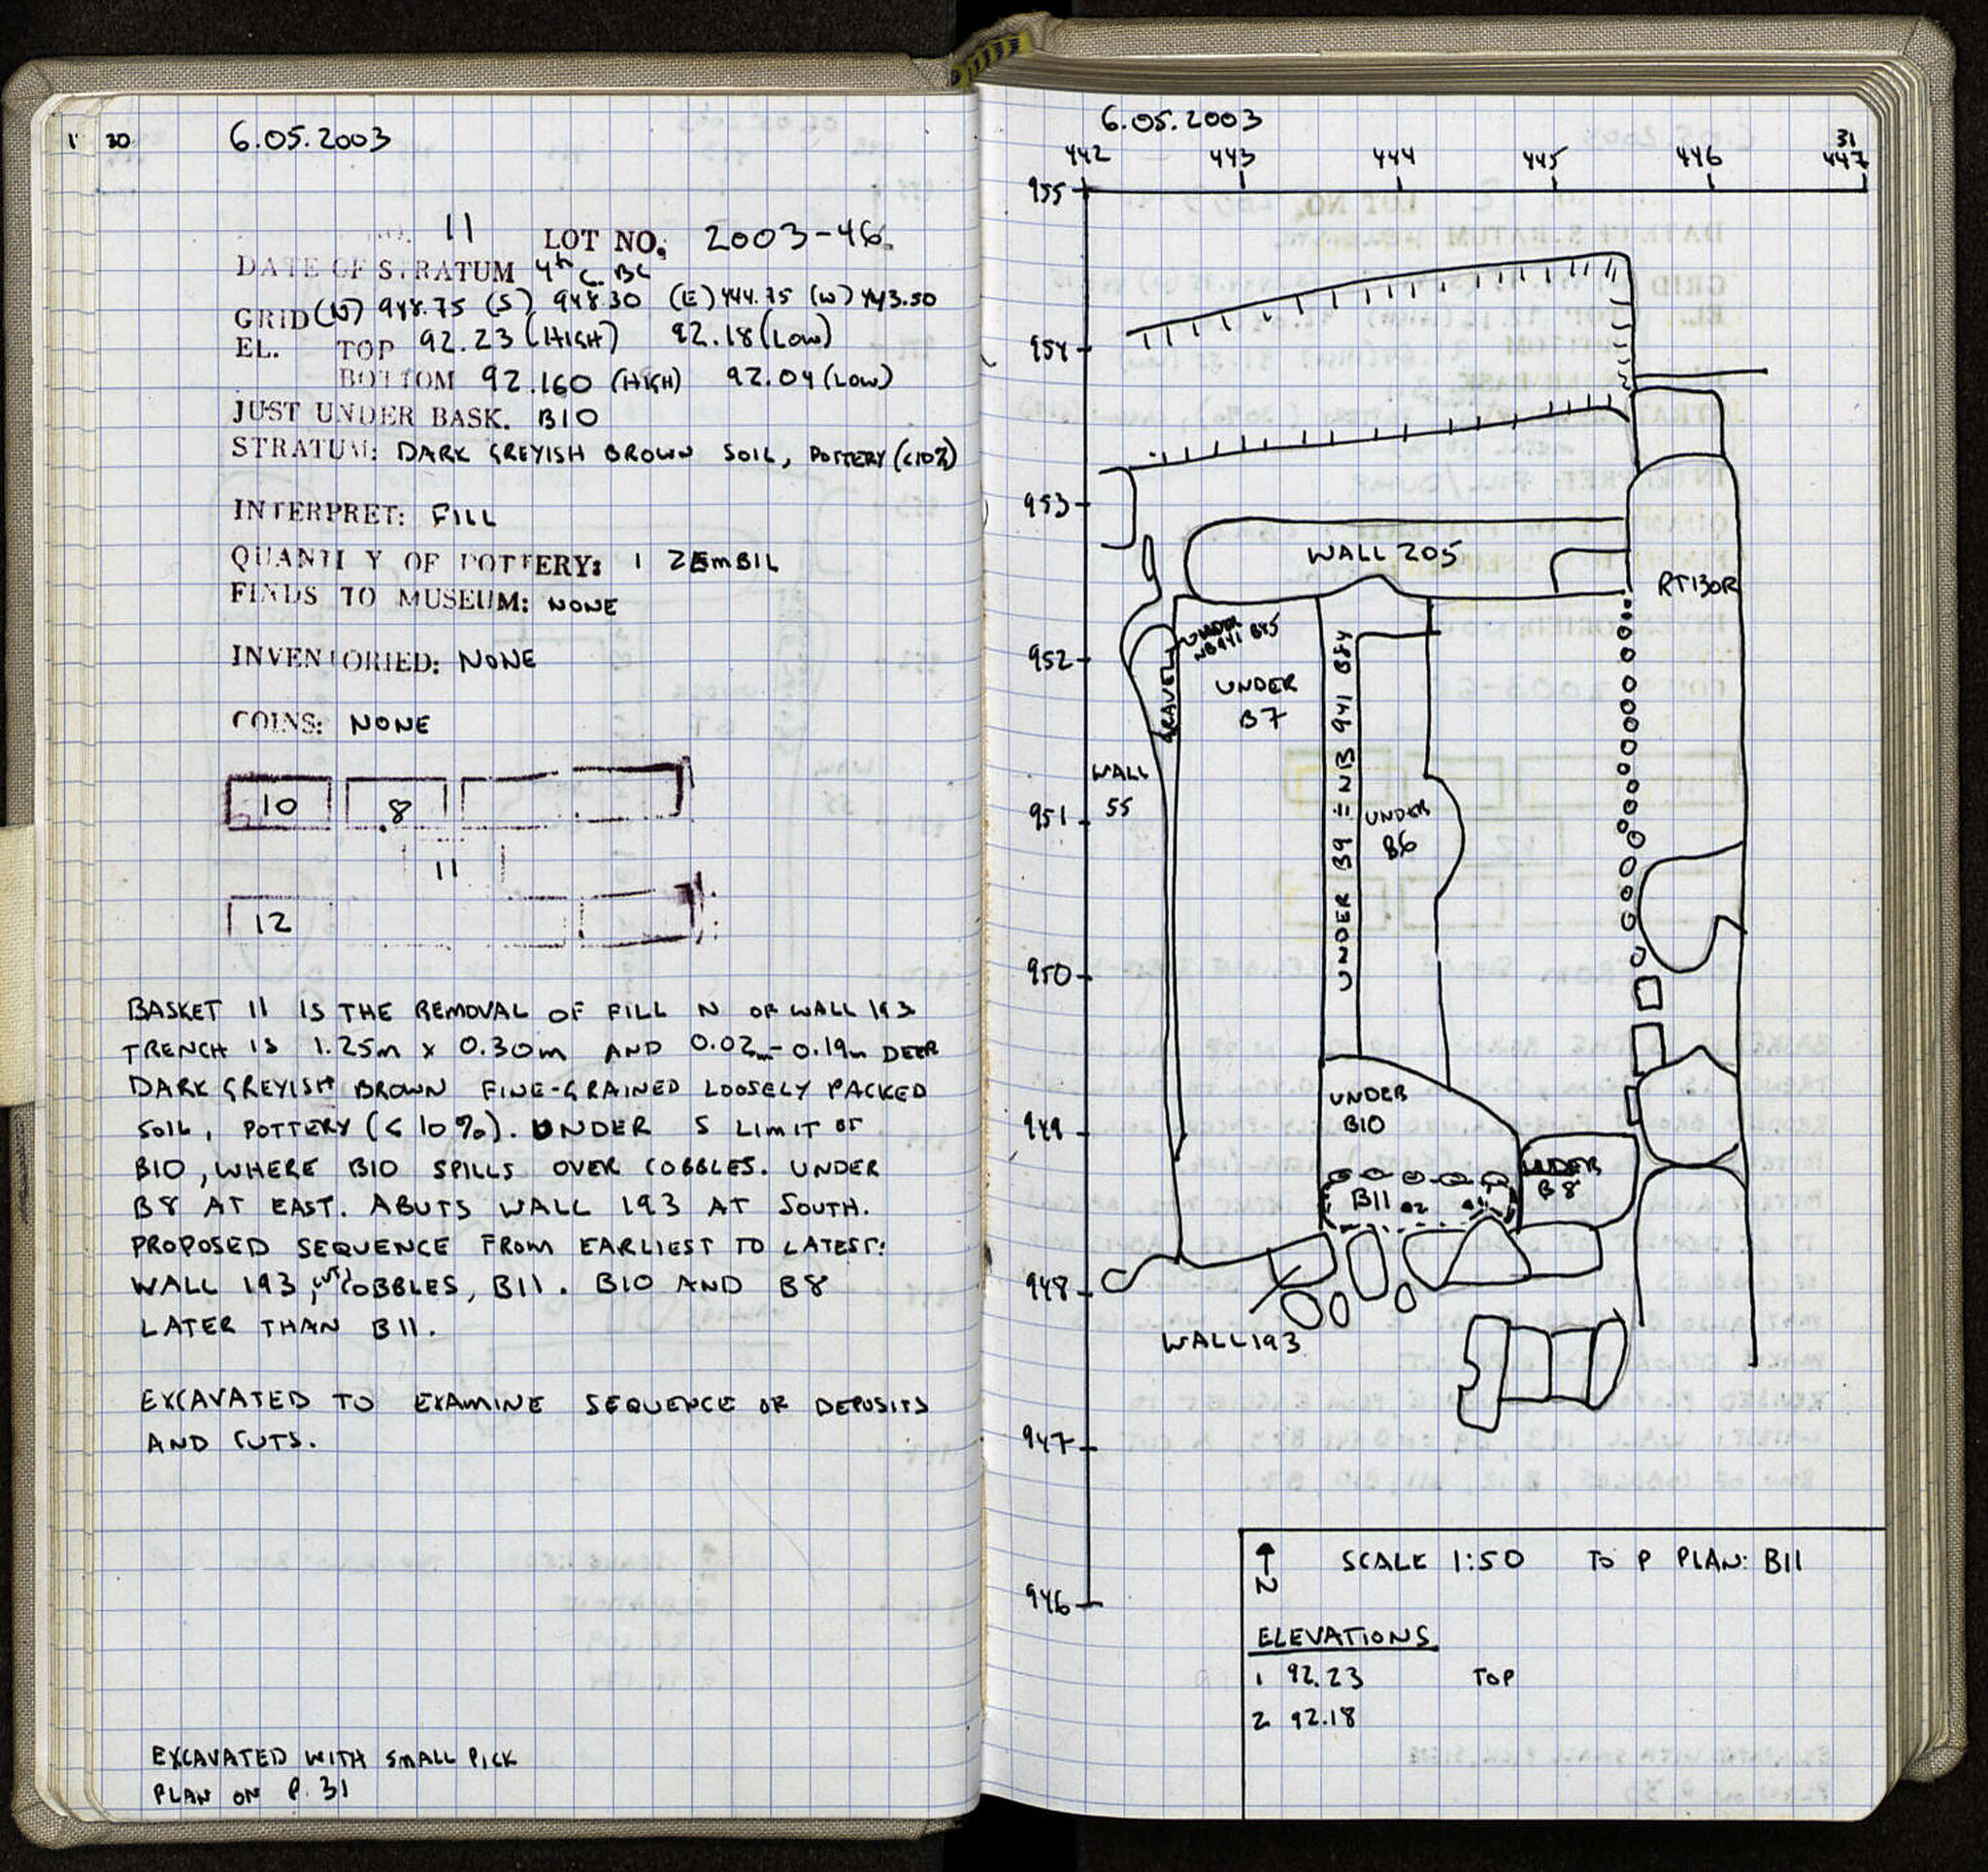 30
6.05.2003
11 LOT NO. 2003-46
DATE OF STRATUM 4th C. BC
GRID (N) 948.75 (S) 948.30 (E) 444.75 (W) 443.50
EL. TOP 92.23 (HIGH) 92.18 (LOW)
BOTTOM 92.160 (HIGH) 92.04 (LOW)
JUST UNDER BASK. B10
STRATUM: DARK GREYISH BROWN SOIL, POTTERY (<10%)
INTERPRET: FILL
QUANTITY OF POTTERY: 1 ZEMBIL
FINDS TO MUSEUM: NONE
INVENTORIED: NONE
COINS: NONE
10 8
11
12
BASKET 11 IS THE REMOVAL OF FILL N OF WALL 193
TRENCH IS 1.25m x 0.30m AND 0.02m-0.19m DEEP
DARK GREYISH BROWN FINE-GRAINED LOOSELY PACKED
SOIL, POTTERY (<10%). UNDER S LIMIT OF
B10, WHERE B10 SPILLS OVER COBBLES. UNDER
B8 AT EAST. ABUTS WALL 193 AT SOUTH.
PROPOSED SEQUENCE FROM EARLIEST TO LATEST:
WALL 193, CUT, COBBLES, B11. B10 AND B8
LATER THAN B11.
EXCAVATED TO EXAMINE SEQUENCE OF DEPOSITS
AND CUTS.
EXCAVATED WITH SMALL PICK
PLAN ON P. 31
6.05.2003
31
442 443 444 445 446 447
955
954
953
WALL 205
RT130R
952
UNDER NB941 B85
UNDER
B7
GRAVEL
UNDER B9 = NB 941 B84
WALL
55
951
UNDER
B6
950
UNDER
B10
949
UNDER
B8
B11
948
WALL 193
947
946
N
SCALE 1:50 TOP PLAN: B11
ELEVATIONS
1 92.23 TOP
2 92.18